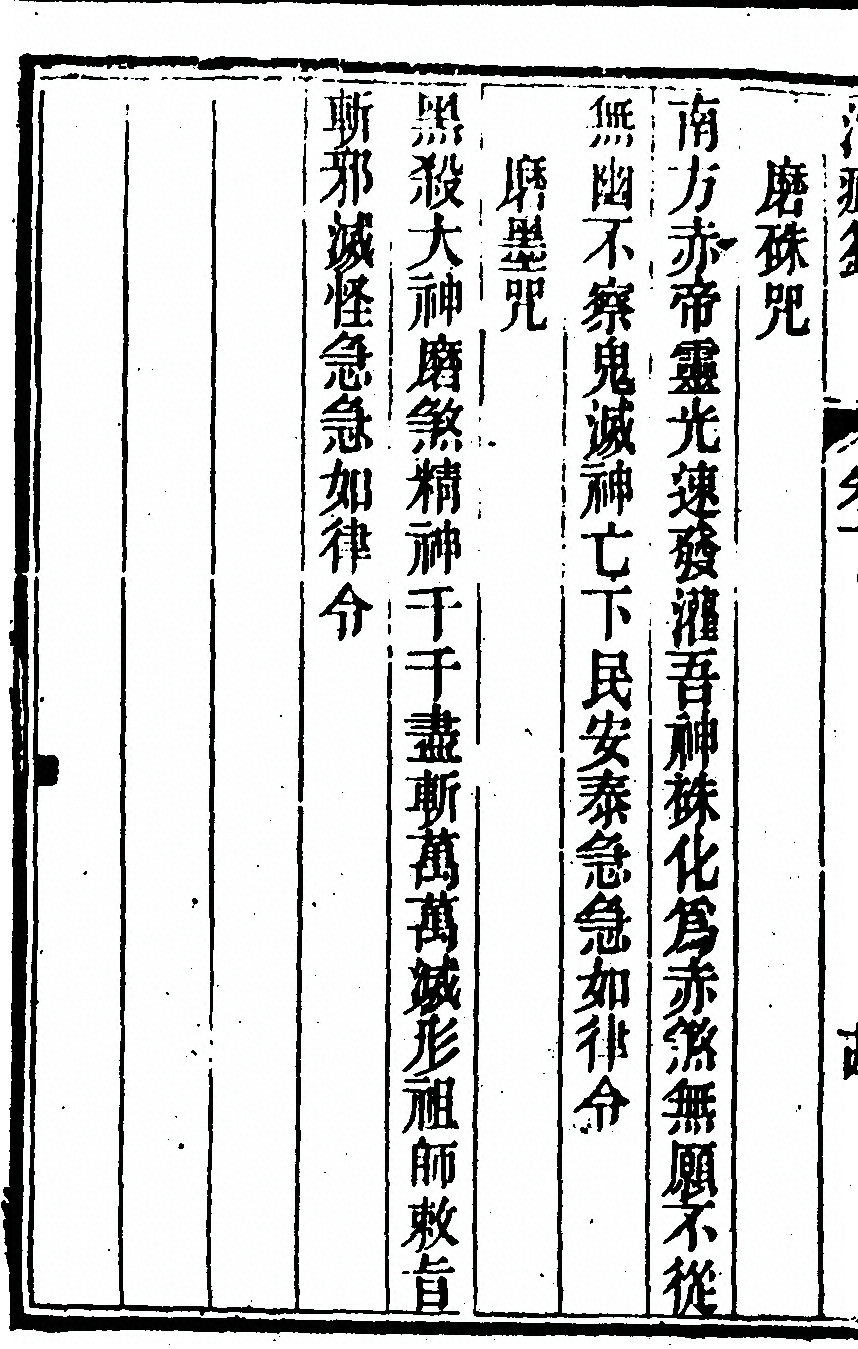 磨硃咒
南方赤帝靈光速發灌吾神硃化爲赤煞無願不從
無幽不察鬼滅神亡下民安泰急急如律令
磨墨咒
黑殺大神磨煞精神千千盡斬萬萬滅形祖師敕旨
斬邪滅怪急急如律令